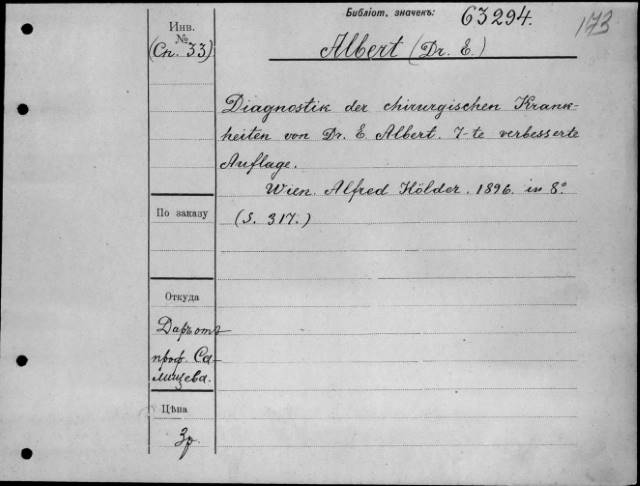 Библіот. значекъ: 63294.
173
Инв.
№
(Сп. 33)
Albert (Dr. E.)
Diagnostik der chirurgischen Krank-
heiten von Dr. E. Albert. 7-te verbesserte
Auflage.
Wien. Alfred Hölder. 1896. in 8°
(S. 317.)
По заказу
Откуда
Даръ отъ
проф. Са-
лищева.
Цѣна
3р.